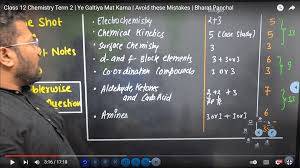 Class 12 Chemistry Term 2 | Ye Galtiya Mat Karna | Avoid these Mistakes | Bharat Panchal
e Shot
Electrochemistry 2+3
Chemical Kinetics 5 (Case Study)
Surface Chemistry 3
rt Notes
d-and f-Block elements 3 + 3 or 3
Co-ordination Compounds 1 or 3
Aldehydes, Ketones 2 + 2 + 3 7
and Carb. Acid
Question
Amines 3 or 3 + 3 or 3 6
3:16 / 17:18